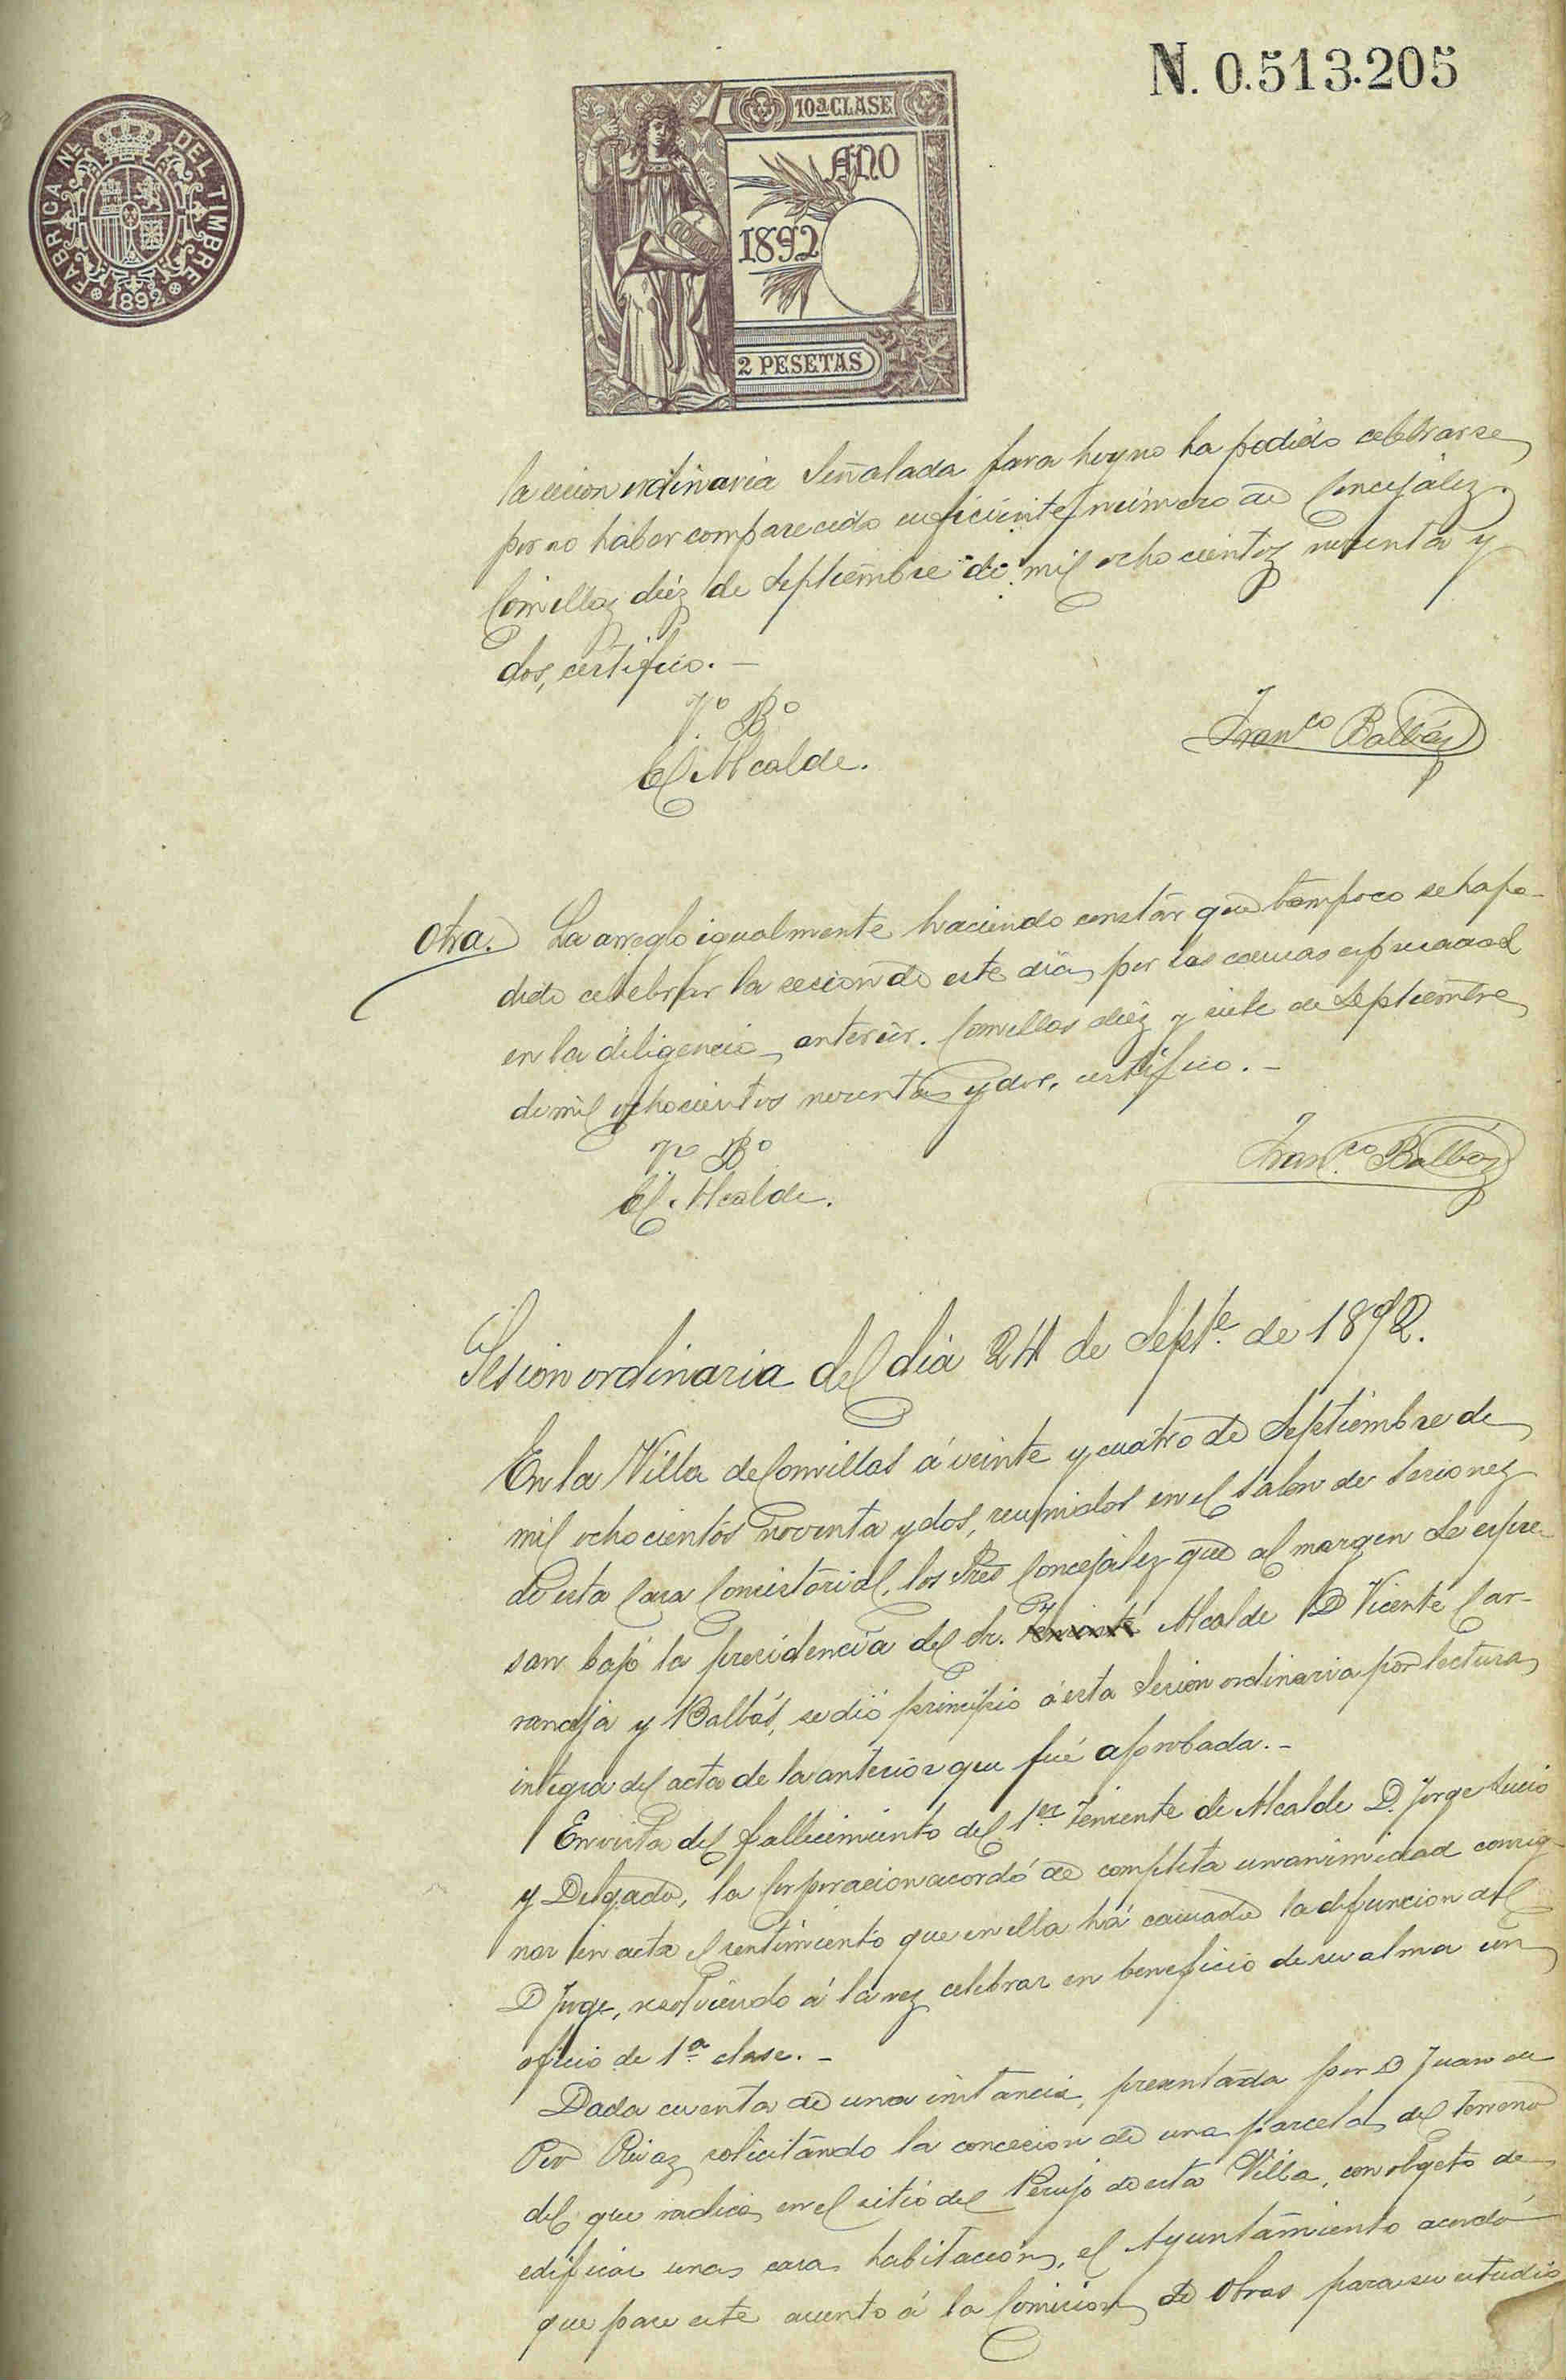 N. 0.513.205
FABRICA NL. DEL TIMBRE
1892
10ª CLASE
AÑO
1892
2 PESETAS
La secion ordinaria señalada para hoy no ha podido celebrarse
por no haber comparecido suficiente número de Concejalez.
Comillaz diéz de Septiembre de mil ochocientoz noventa y
dos, certifico. —
Vº Bº
El Alcalde.
Franco Balbás
Otra. La arreglo igualmente haciendo constar que tampoco se ha po-
dido celebrar la secion de este dia por las causas espresadas
en la diligencia anterior. Comillas diez y siete de Septiembre
de mil ochocientos noventa y dos, certifico. —
Vº Bº
El Alcalde.
Franco Balbás
Sesion ordinaria del dia 24 de Septe. de 1892.
En la Villa de Comillas á veinte y cuatro de Septiembre de
mil ochocientos noventa y dos, reunidos en el salon de sesionez
de esta Casa Consistorial, los Sres Concejalez que al margen se espre-
san bajo la presidencia del Sr. Teniente Alcalde D Vicente Car-
ranceja y Balbás, se dió principio á esta Sesion ordinaria por lectura
integra del acta de la anterior que fué aprobada. —
En vista del fallecimiento del 1er. Teniente de Alcalde D. Jorge Sucio
y Delgado, la Corporacion acordó de completa unanimidad consig-
nar en acta el sentimiento que en ella há causado la difuncion del
D Jorge, resolviendo á la vez celebrar en beneficio de su alma un
oficio de 1ª clase. —
Dada cuenta de una instancia, presentada por D Juan de
Rivaz solicitando la concesion de una parcela del terreno
del que radica en el sitio del de esta Villa, con objeto de
edificar una casa habitacion, el Ayuntamiento acordó
que pase este asunto á la Comision de Obras para su estudio